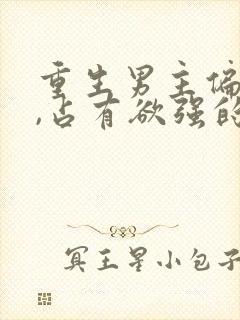 重生男主偏
,占有欲强的
冥王星小包子